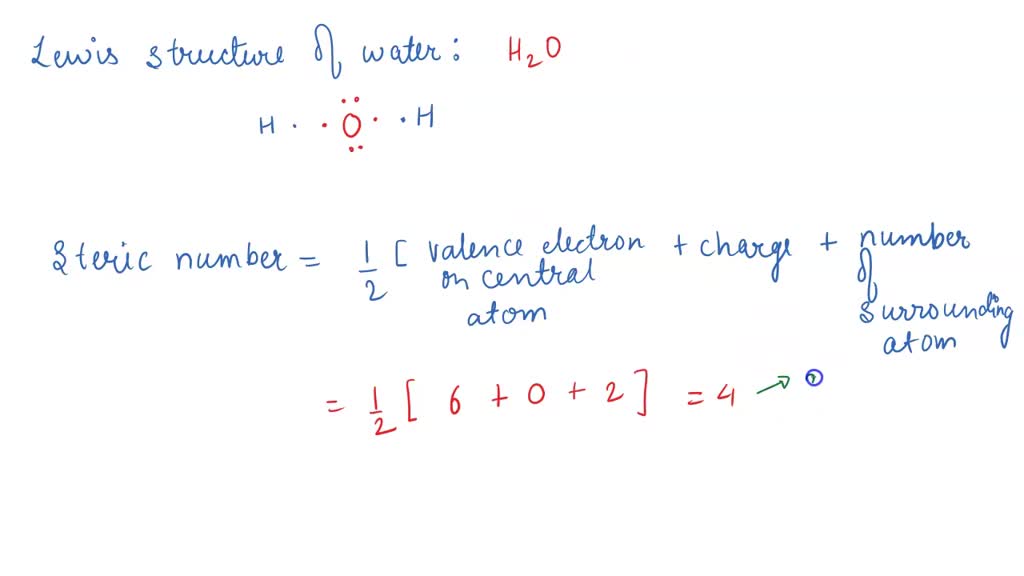 Lewis structure of water: H₂O
H · · O · · H
Steric number = 1/2 [ valence electron on central atom + charge + number of surrounding atom
= 1/2 [ 6 + 0 + 2 ] = 4 →